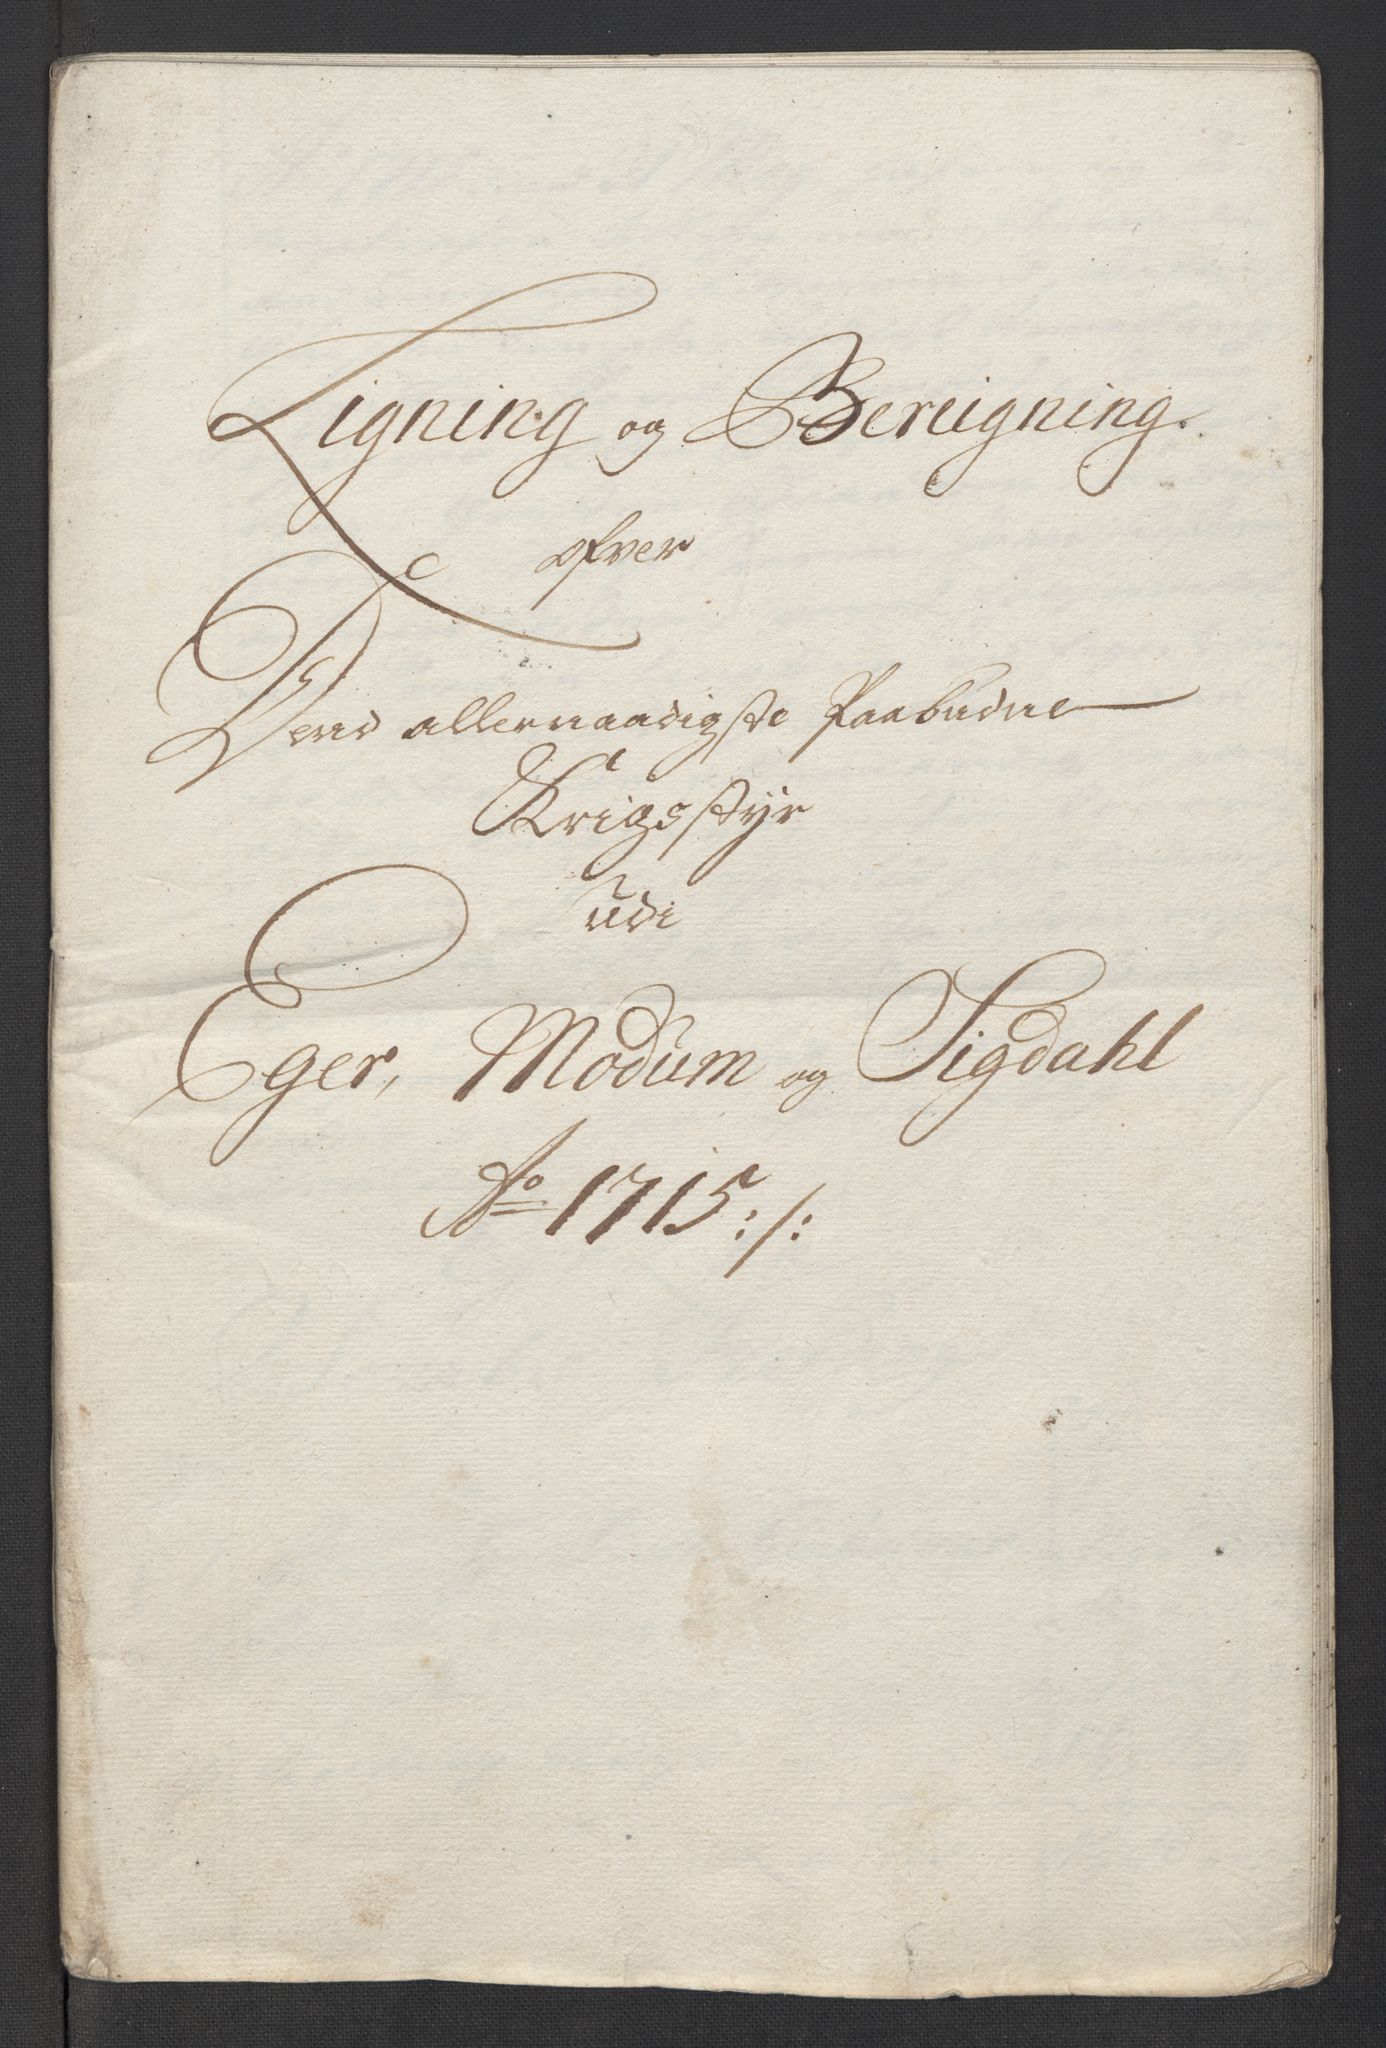 Ligning og Bereigning.
ofver
Dend allernaadigste Paabudne
Krigsstyr
udi
Eger, Modum og Sigdahl
Ao 1715:/: